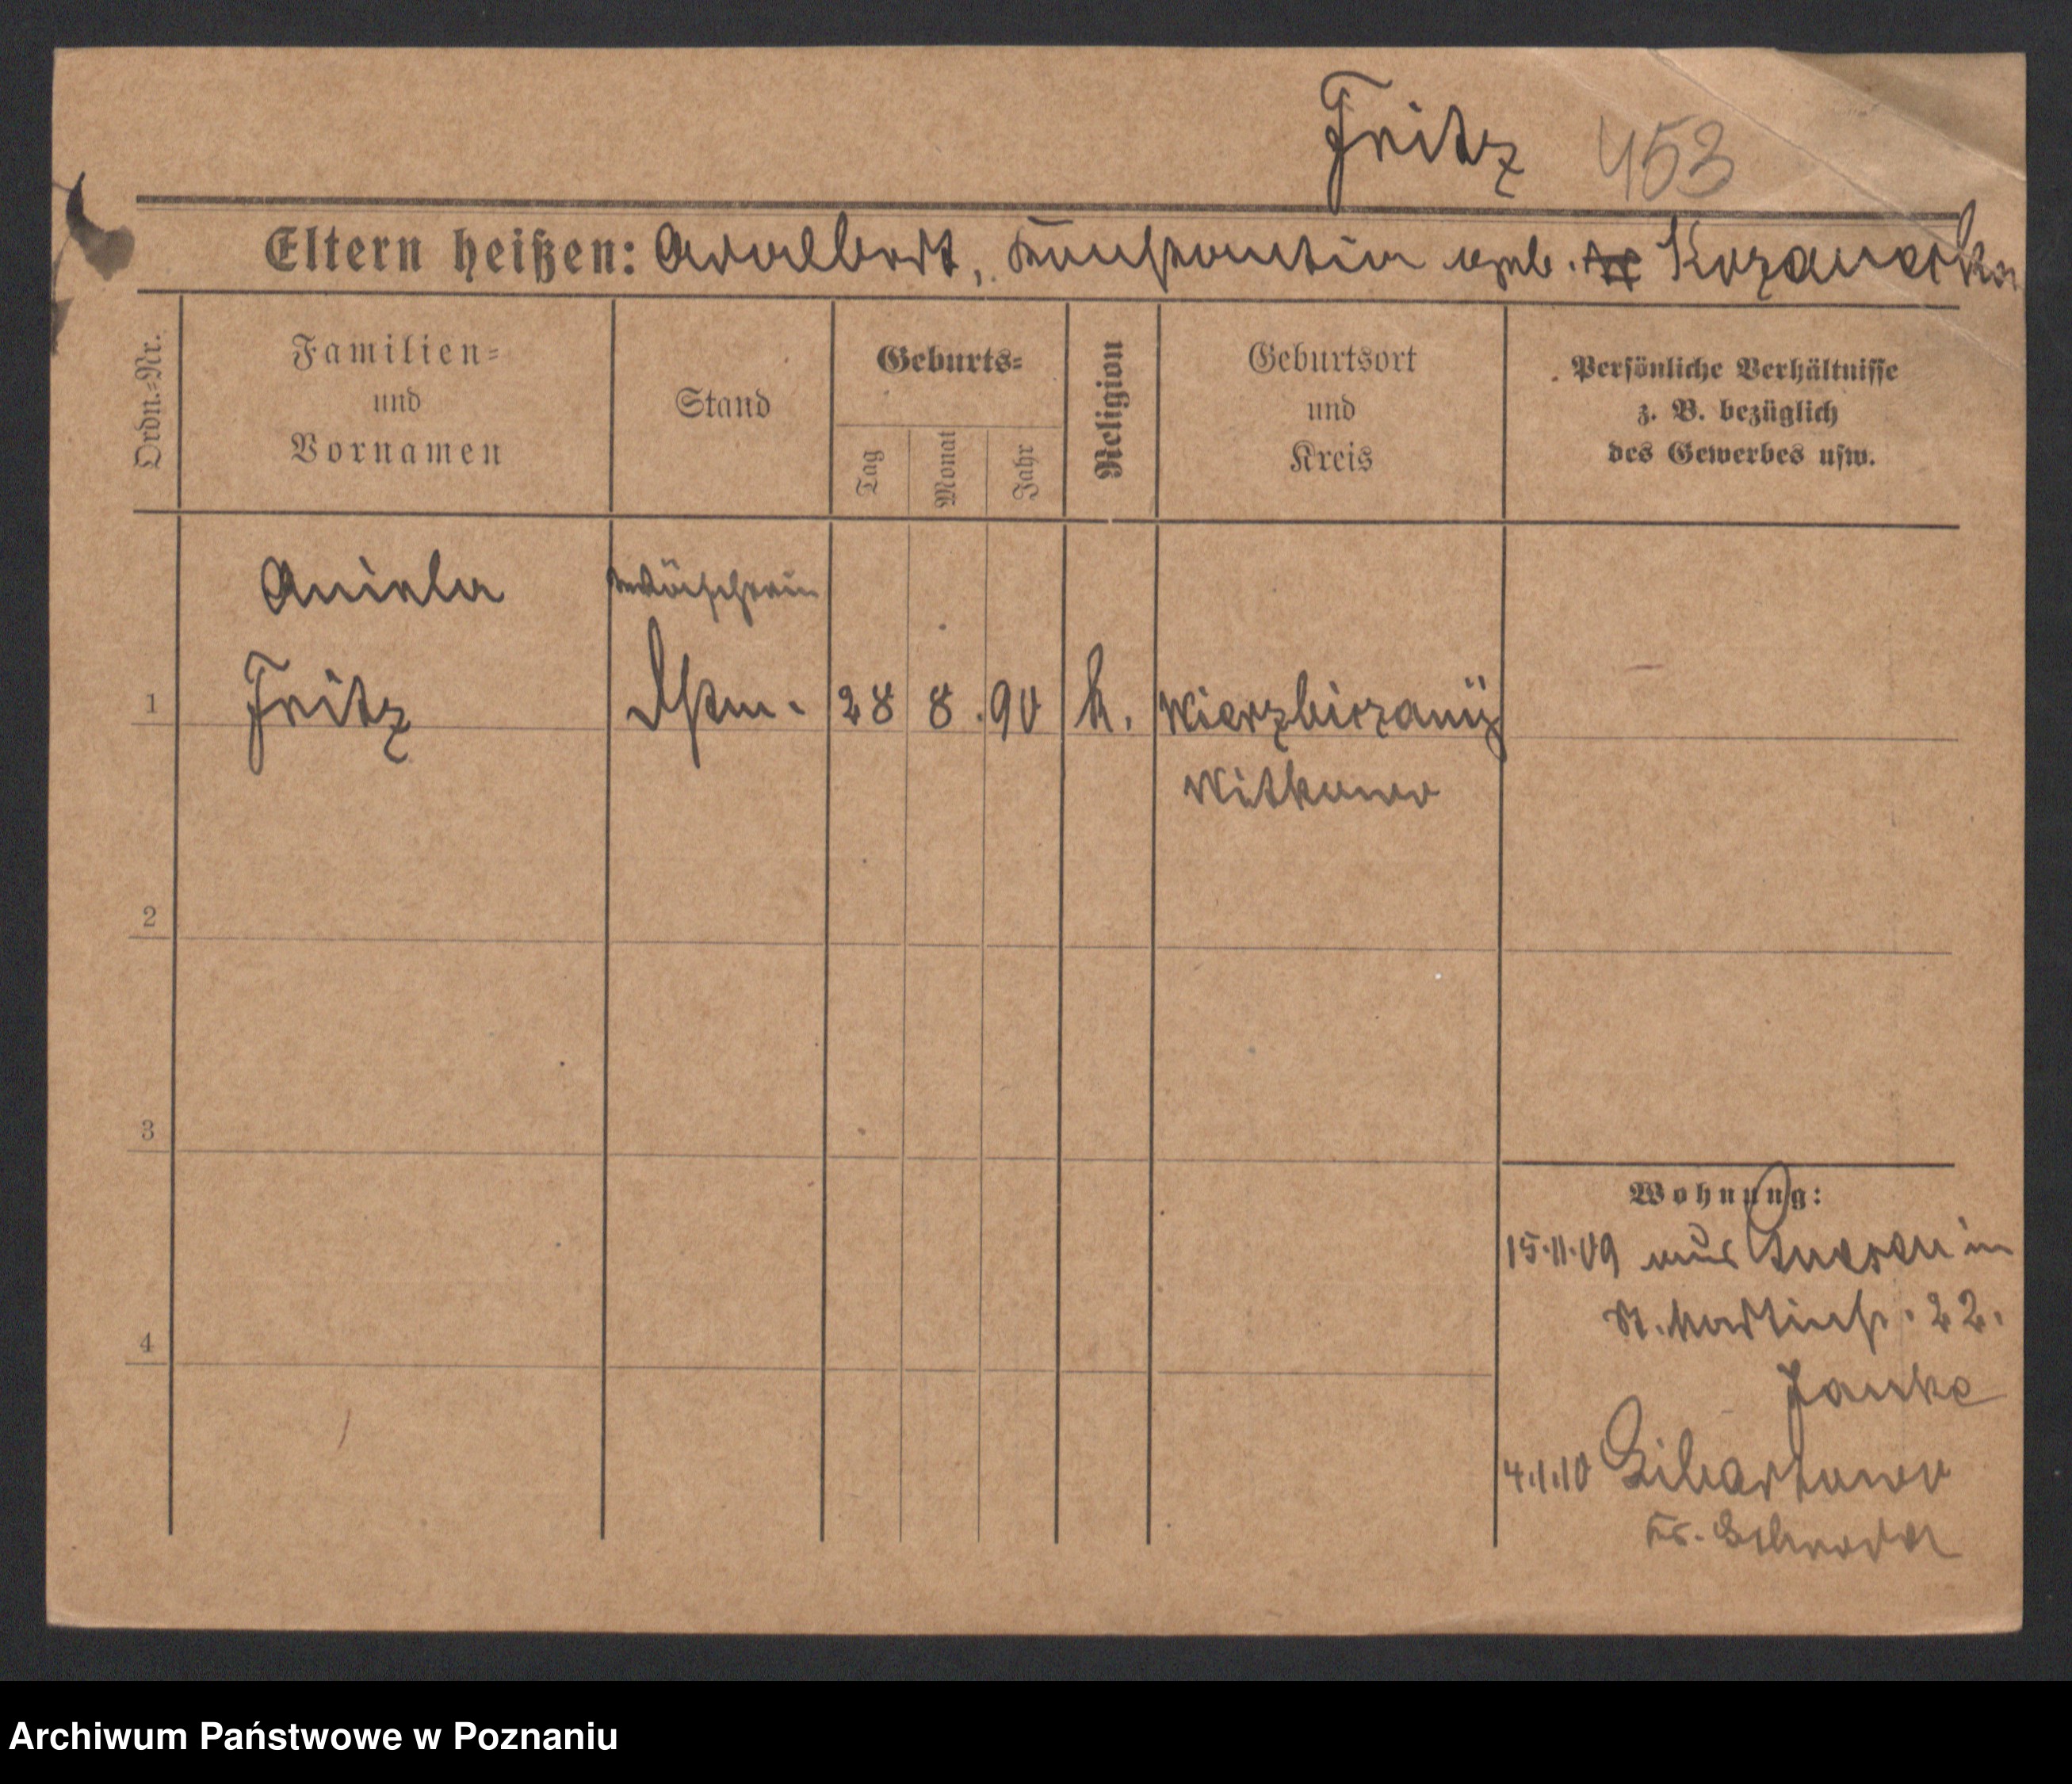 Fritz 453
Eltern heißen: Adalbert, Konstantia geb. Kozanecka
Ordn.=Nr.
Familien=
und
Vornamen
Stand
Geburts=
Tag
Monat
Jahr
Religion
Geburtsort
und
Kreis
Persönliche Verhältnisse
z. B. bezüglich
des Gewerbes usw.
Aniela Wäscherin
1 Fritz Dstm. 28 8. 90 k. Wierzbiczany
Witkowo
2
3
4
Wohnung:
15.11.09 aus Gnesen in
St. Martinstr. 22.
Janke
4.1.10 Libartowo
Kr. Schroda
Archiwum Państwowe w Poznaniu